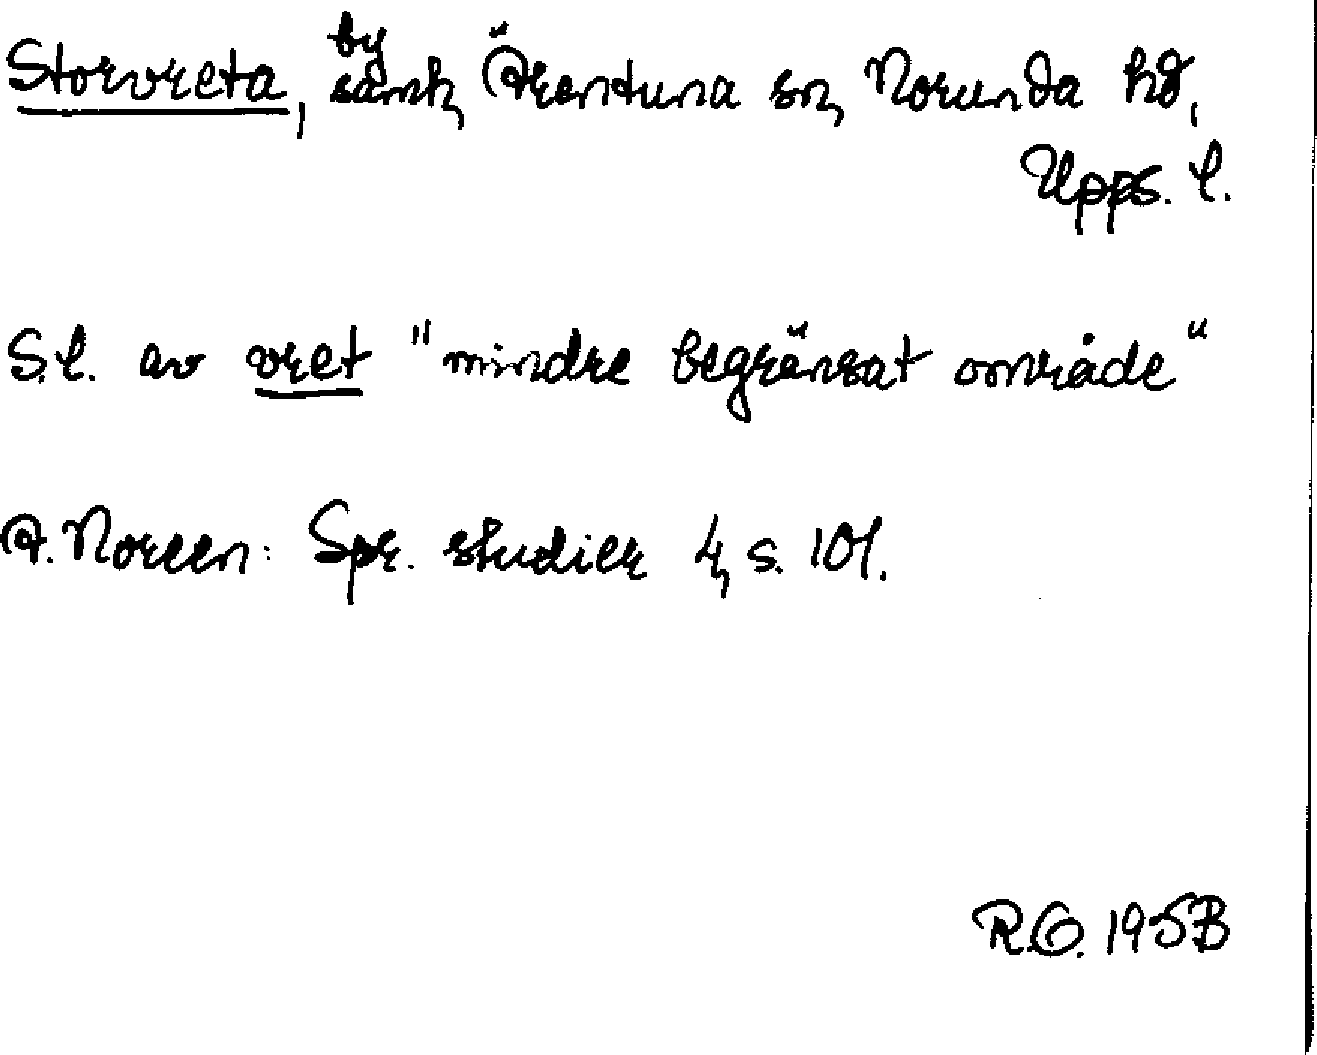 by
Storvreta, samh, Ärentuna sn, Norunda hd,
Upps. l.
S.l. av vret "mindre begränsat område"
A. Noreen: Spr. studier 4, s. 101.
R.O. 1958